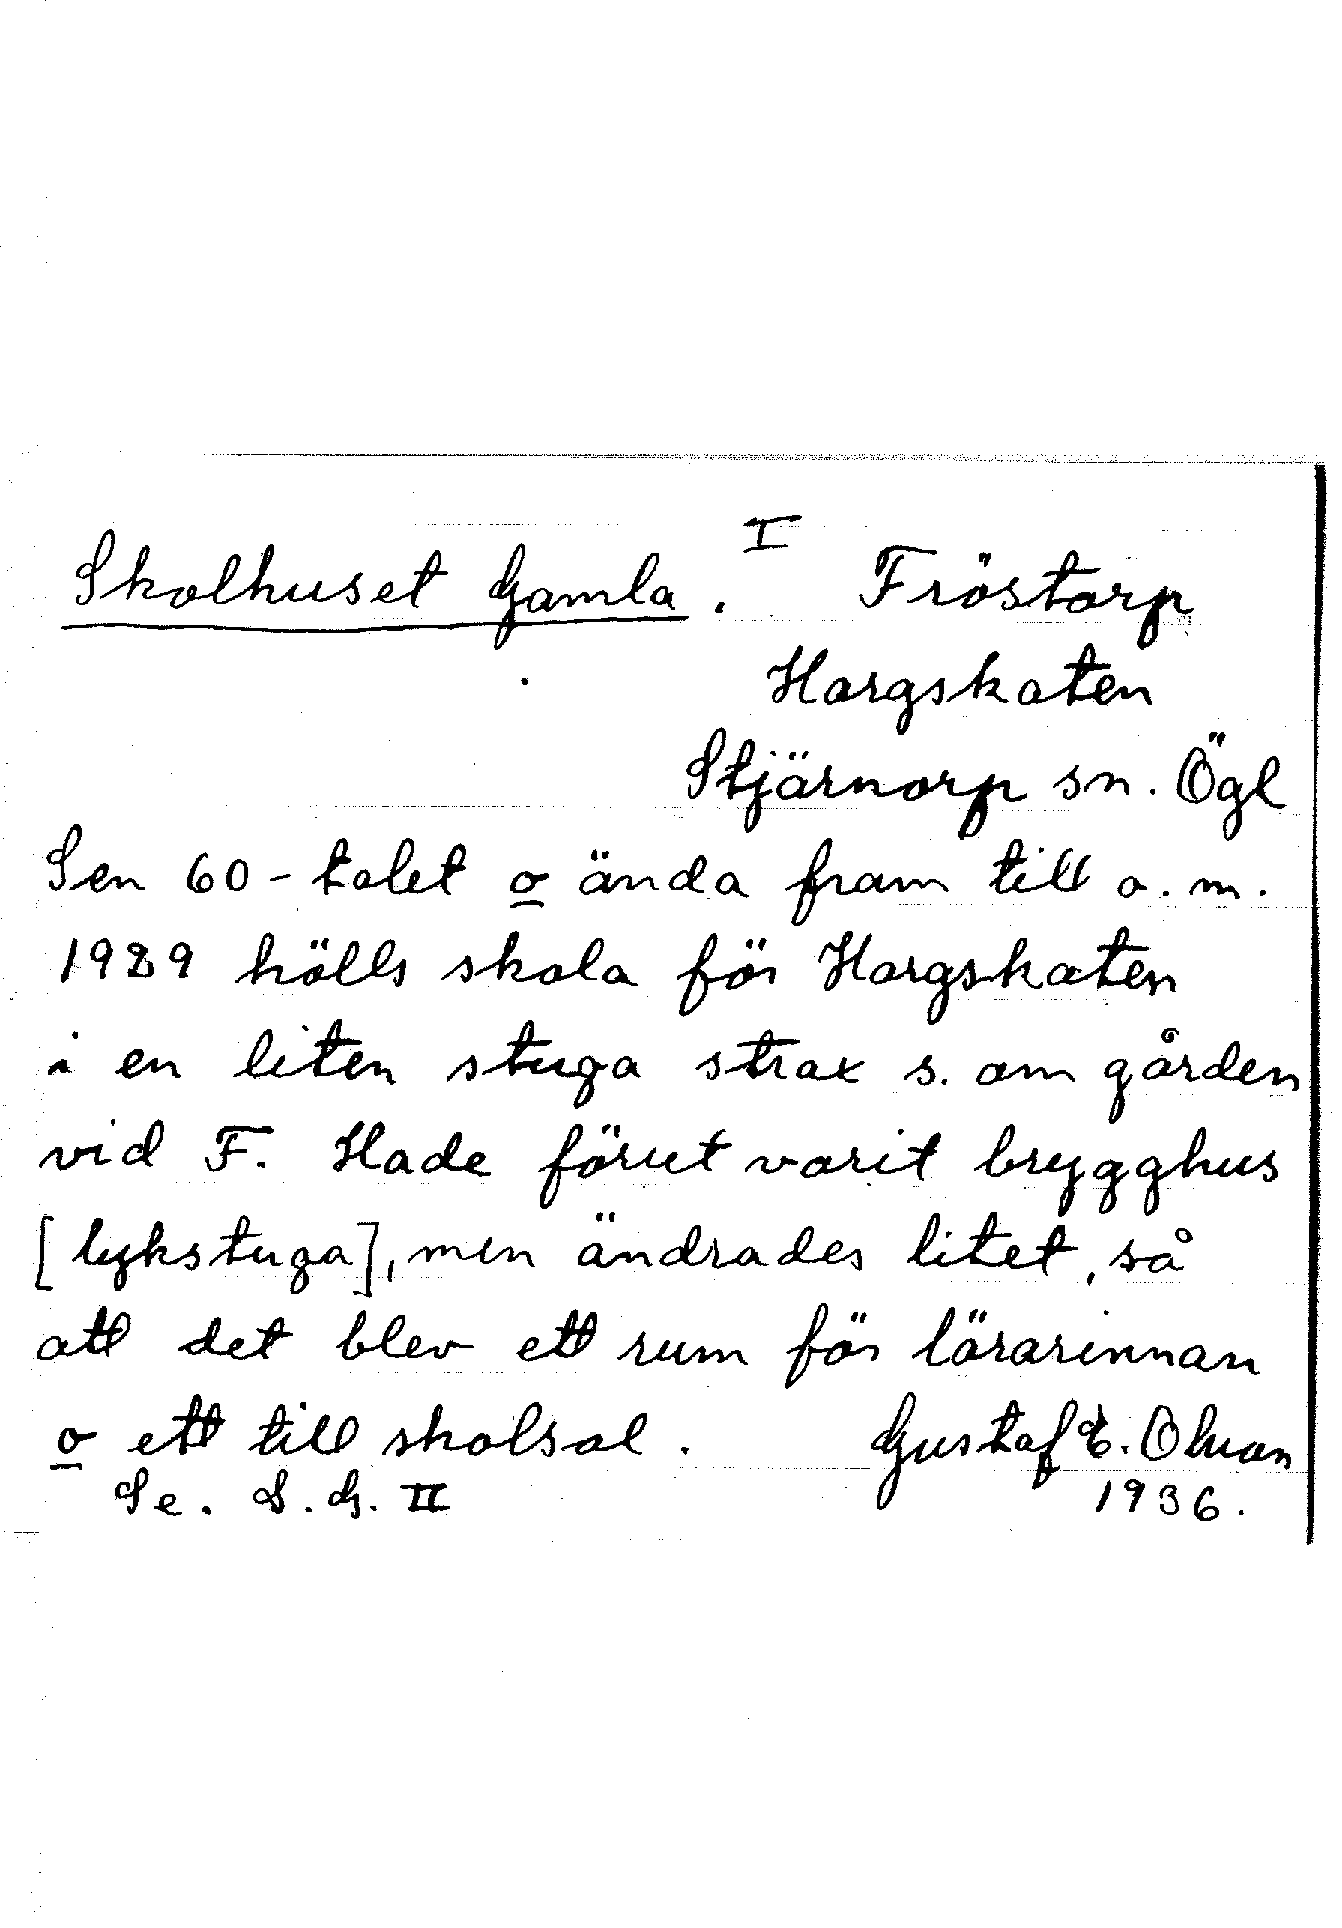 Skolhuset Gamla. I Fröstorp
Hargskaten
Stjärnorp sn. Ögl
Sen 60-talet o ända fram till o. m.
1929 hölls skola för Hargskaten
i en liten stuga strax s. om gården
vid F. Hade förut varit brygghus
[lykstuga], men ändrades litet, så
att det blev ett rum för lärarinnan
o ett till skolsal. Gustaf E. Olson
Se. S. G. II 1936.